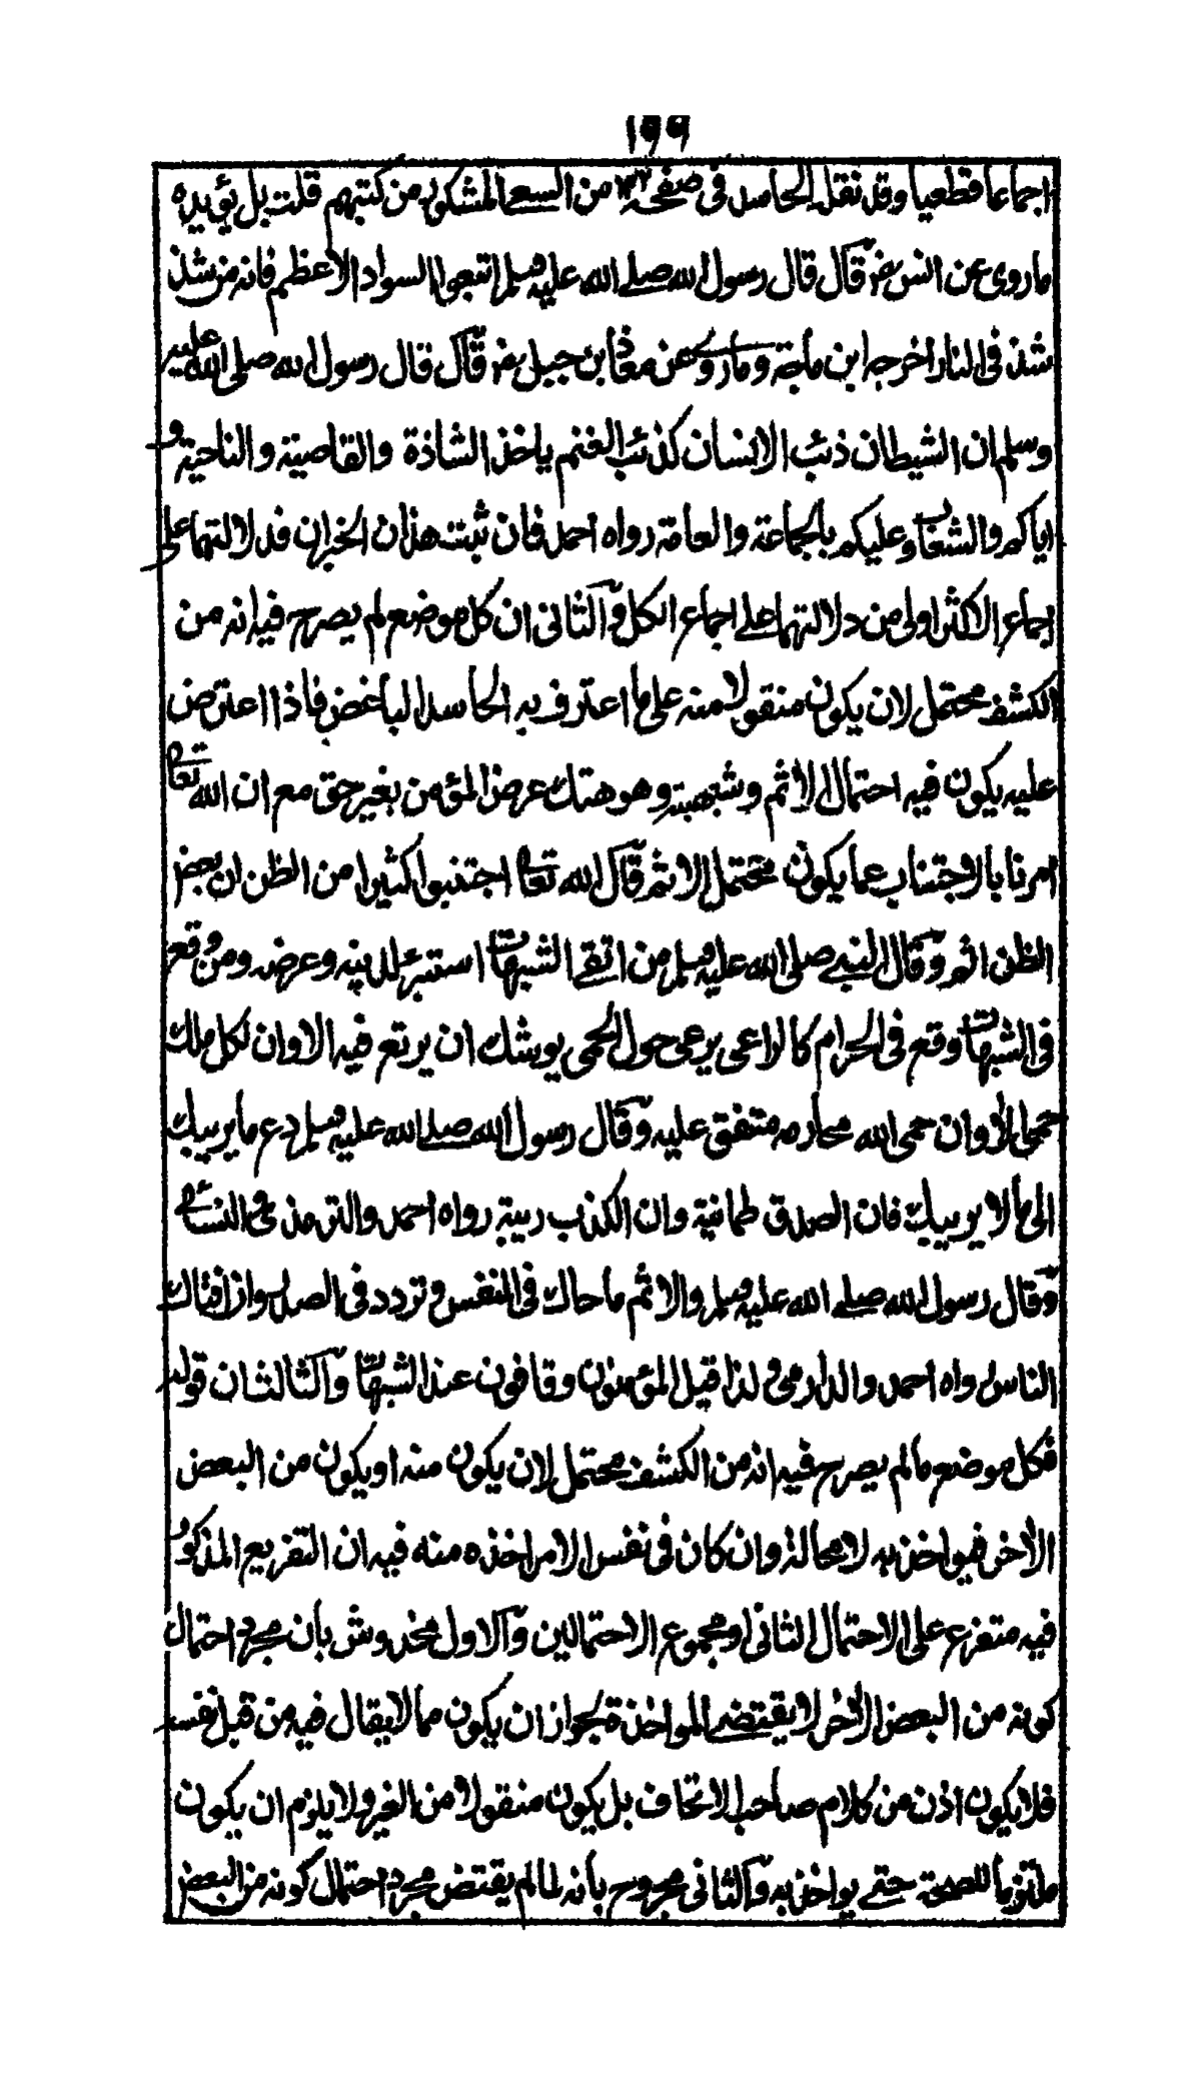 ١٩٩
اجماعا قطعيا وقد نقله الحاسد فى صفحه من السعى المشكور من كتبهم قلت بل يؤيده
ماروى عن انس رض قال قال رسول الله صلى الله عليه وسلم اتبعوا السواد الاعظم فانه من شذ
شذ فى النار اخرجه ابن ماجة وماروى عن معاذ بن جبل رض قال قال رسول الله صلى الله عليه
وسلم ان الشيطان ذئب الانسان كذئب الغنم ياخذ الشاذة والقاصية والناحية و
اياكم والشعاب وعليكم بالجماعة والعامة رواه احمد فان ثبت هذان الخبران فدلالتهما على
اجماع الاكثر اولى من دلالتهما على اجماع الكل والثانى ان كل موضع لم يصرح فيه انه من
الكشف محتمل لان يكون منقولا منه على ما اعترف به الحاسد الباغض فاذا اعترض
عليه يكون فيه احتمال الاثم وشبهته وهو هتك عرض المؤمن بغير حق مع ان الله تعالى
امرنا بالاجتناب عما يكون محتمل الاثم قال الله تعالى اجتنبوا كثيرا من الظن ان بعض
الظن اثم وقال النبى صلى الله عليه وسلم من اتقى الشبهات استبرئ لدينه وعرضه ومن وقع
فى الشبهات وقع فى الحرام كالراعى يرعى حول الحمى يوشك ان يرتع فيه الا وان لكل ملك
حمى الا وان حمى الله محارمه متفق عليه وقال رسول الله صلى الله عليه وسلم دع ما يريبك
الى ما لا يريبك فان الصدق طمانية وان الكذب ريبة رواه احمد والترمذى والنسائى
وقال رسول الله صلى الله عليه وسلم والاثم ما حاك فى النفس وتردد فى الصدر وان افتاك
الناس رواه احمد والدارمى ولذا قيل المؤمنون وقافون عند الشبهات والثالث ان قوله
فكل موضع مالم يصرح فيه انه من الكشف محتمل لان يكون منه او يكون من البعض
الآخر فيواخذ به لا محالة وان كان فى نفس الامر اخذه منه فيه ان التفريع المذكور
فيه متفرع على الاحتمال الثانى او مجموع الاحتمالين والاول مخدوش بان مجرد احتمال
كونه من البعض الآخر لا يقتضى المواخذة لجواز ان يكون مما لا يقال فيه من قبل نفسه
فلا يكون اذن من كلام صاحب الاتحاف بل يكون منقولا من الغير ولا يلزم ان يكون
ملتزما للصحة حتى يواخذ به والثانى مجروح بانه لما لم يقتض مجرد احتمال كونه من البعض